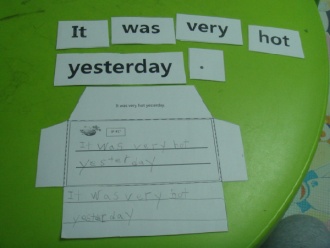 It was very hot
yesterday .
It was very hot yesterday.
It was very hot
yesterday
It was very hot
yesterday